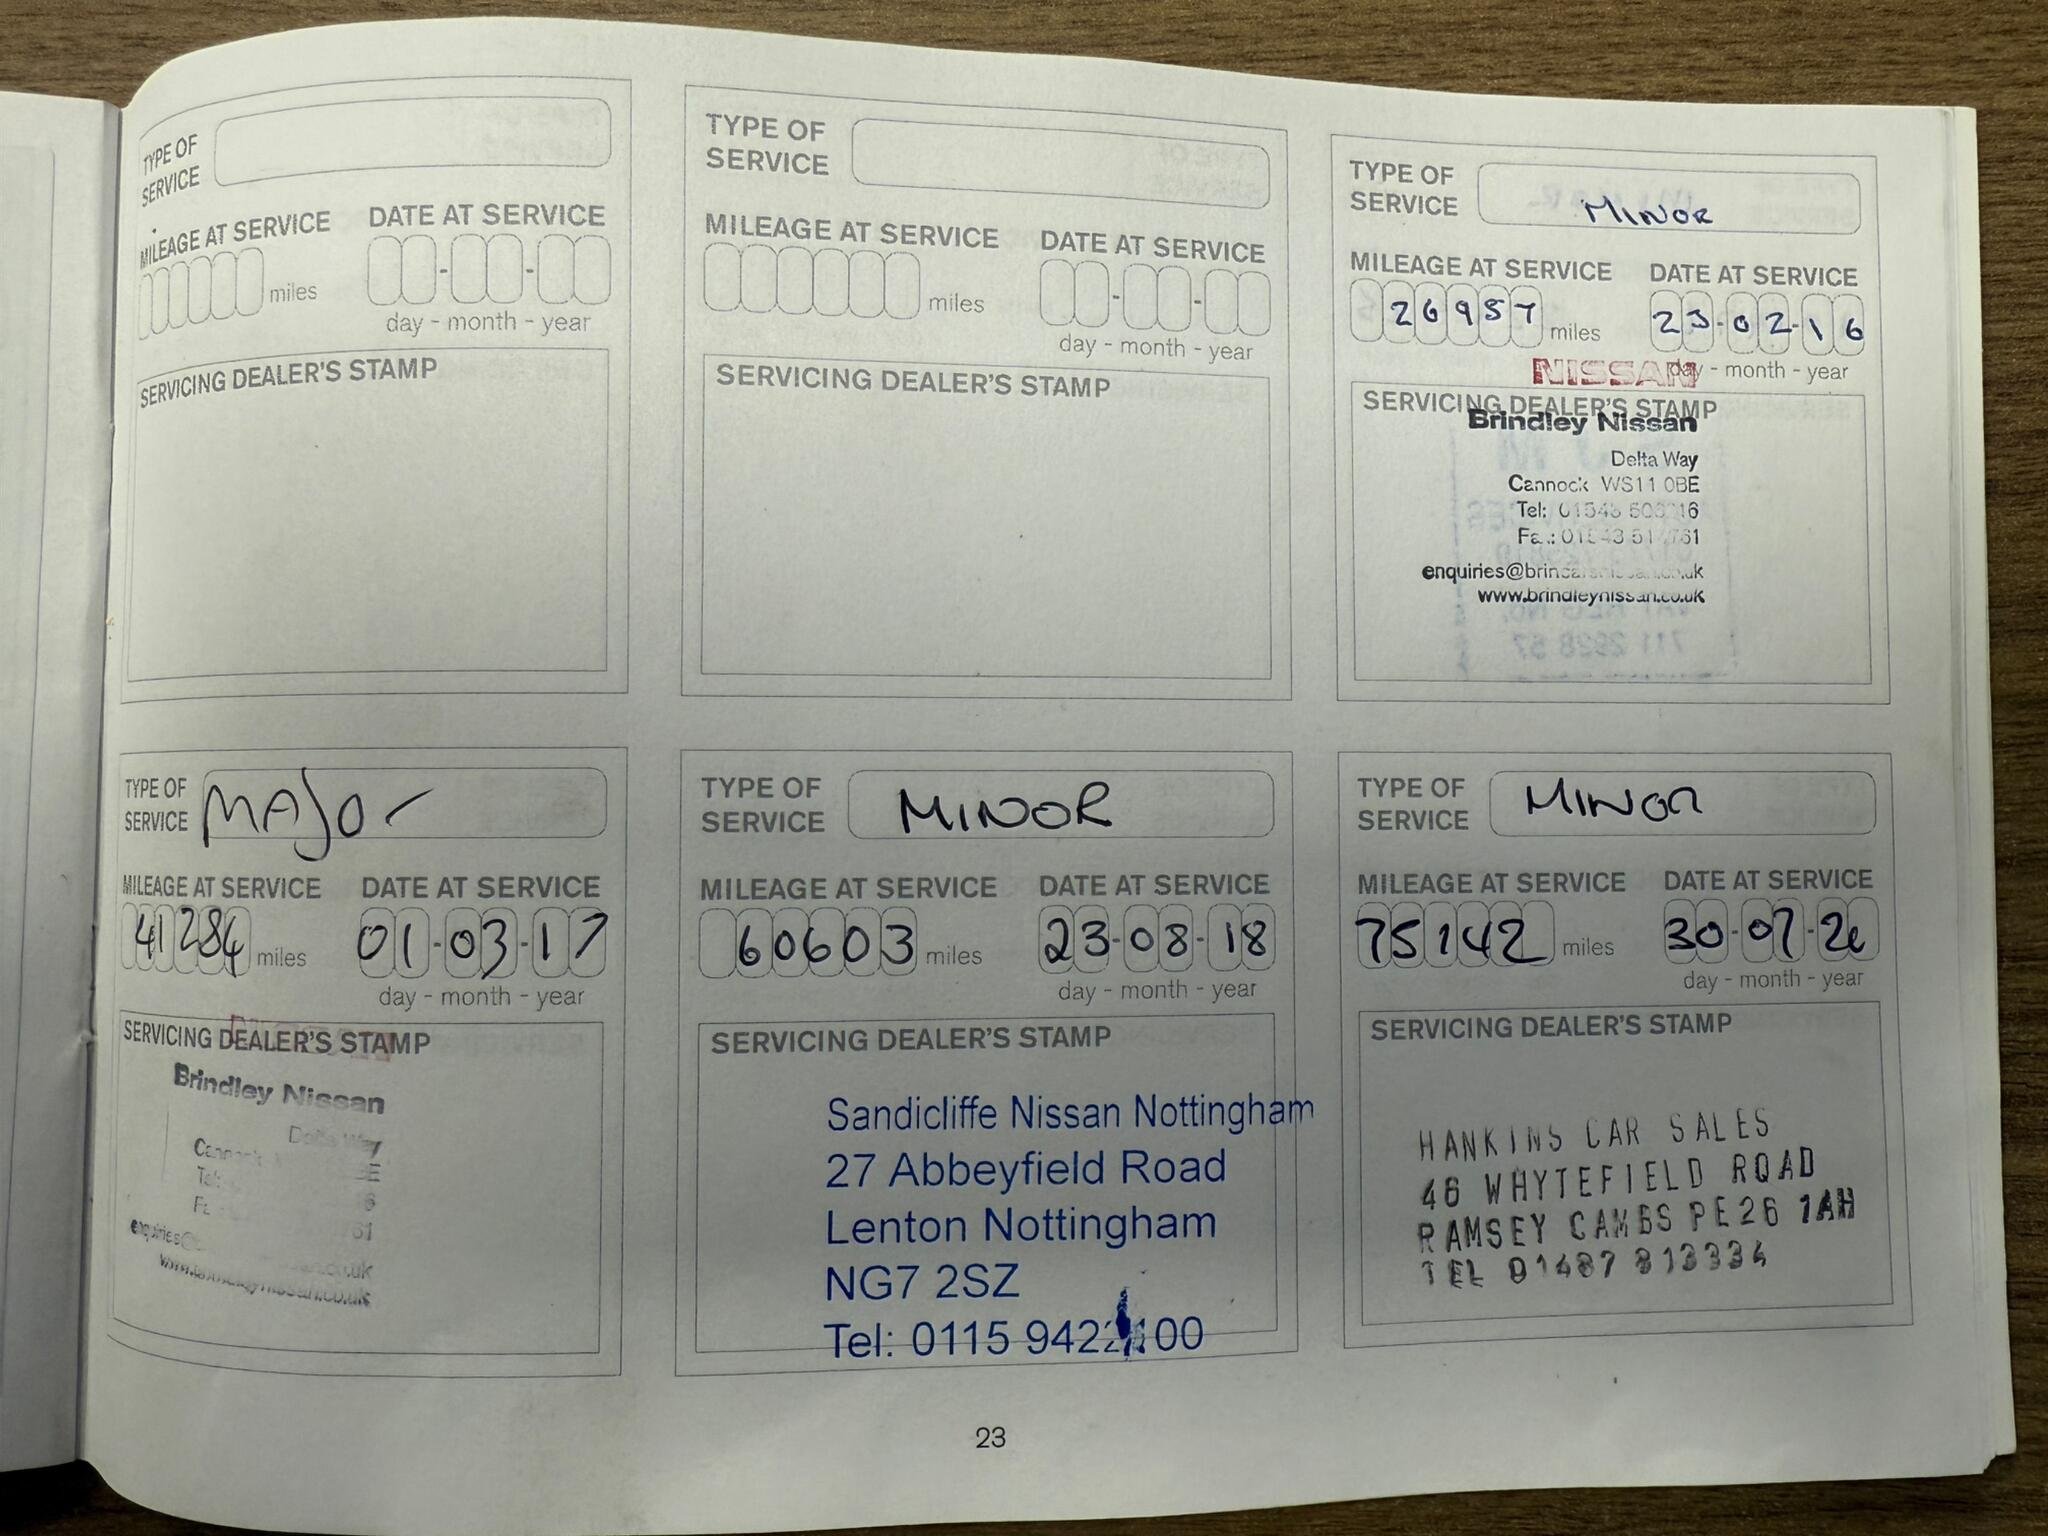 TYPE OF
SERVICE
MILEAGE AT SERVICE
DATE AT SERVICE
miles
day - month - year
SERVICING DEALER'S STAMP
TYPE OF
SERVICE
MILEAGE AT SERVICE
DATE AT SERVICE
miles
day - month - year
SERVICING DEALER'S STAMP
TYPE OF
SERVICE
MINOR
MILEAGE AT SERVICE
DATE AT SERVICE
26957 miles
23-02-16
day - month - year
NISSAN
SERVICING DEALER'S STAMP
Brindley Nissan
Delta Way
Cannock WS11 0BE
Tel: 01543
www.brindleynissan.co.uk
TYPE OF
SERVICE
MAJOR
MILEAGE AT SERVICE
DATE AT SERVICE
41284 miles
01-03-17
day - month - year
SERVICING DEALER'S STAMP
Brindley Nissan
Delta Way
TYPE OF
SERVICE
MINOR
MILEAGE AT SERVICE
DATE AT SERVICE
60603 miles
23-08-18
day - month - year
SERVICING DEALER'S STAMP
Sandicliffe Nissan Nottingham
27 Abbeyfield Road
Lenton Nottingham
NG7 2SZ
Tel: 0115
TYPE OF
SERVICE
MINOR
MILEAGE AT SERVICE
DATE AT SERVICE
75142 miles
30-07-20
day - month - year
SERVICING DEALER'S STAMP
HANKINS CAR SALES
46 WHYTEFIELD ROAD
RAMSEY CAMBS PE26 1AH
TEL 01487 813334
23